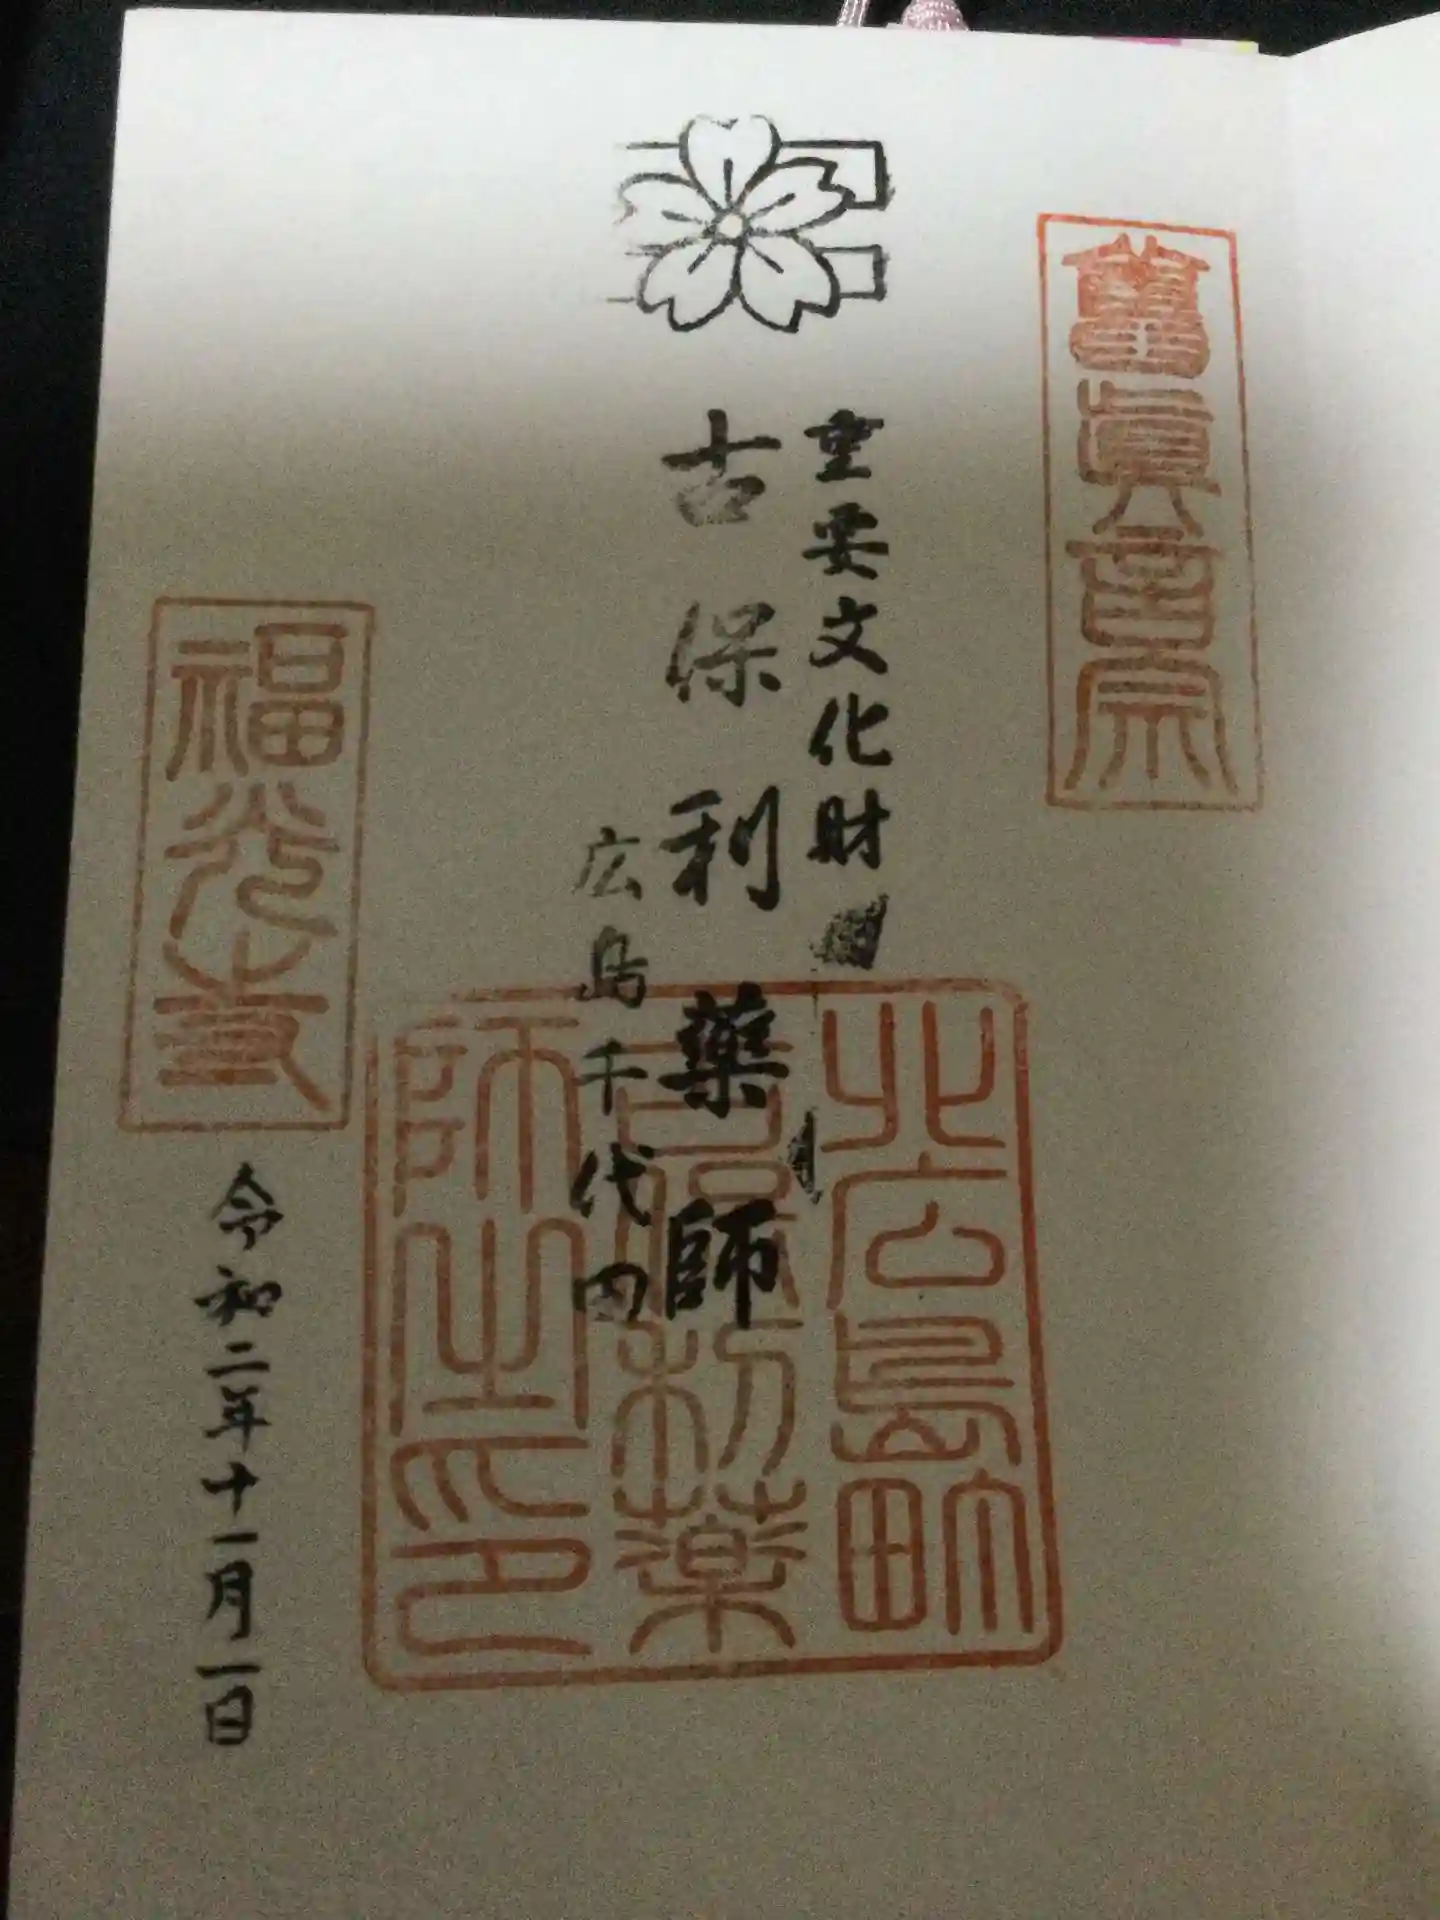 舊眞言宗
重要文化財
古保利薬師
広島千代田
北広島町
古保利薬
師之印
福光寺
令和二年十一月一日